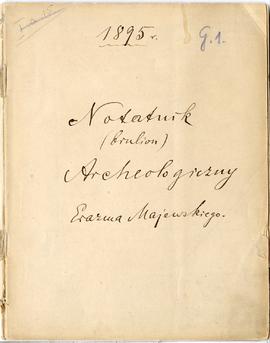 1895 r.
G.1.
Notatnik
(brulion)
Archeologiczny
Erazma Majewskiego.